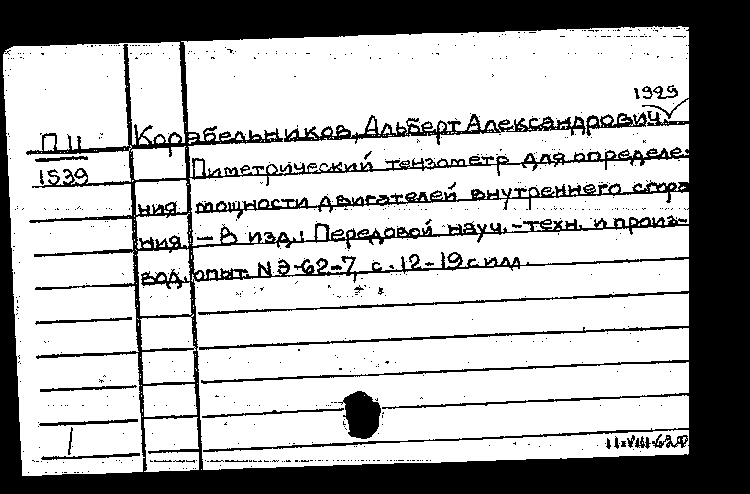 1929
П 11 Корабельников, Альберт Александрович.
1539 Пиметрический тензометр для определе-
ния мощности двигателей внутреннего сгора
ния. – В изд.: Передовой науч.-техн. и произ-
вод. опыт. N Э-62-7, с. 12-19 с илл.
11.VIII.62